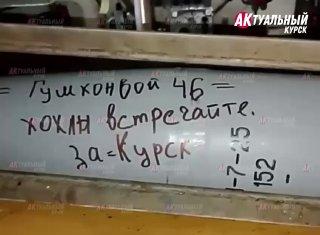 АКТУАЛЬНЫЙ
КУРСК
= Гумконвой 46 =
хохлы встречайте.
За=Курск
-7-25
152